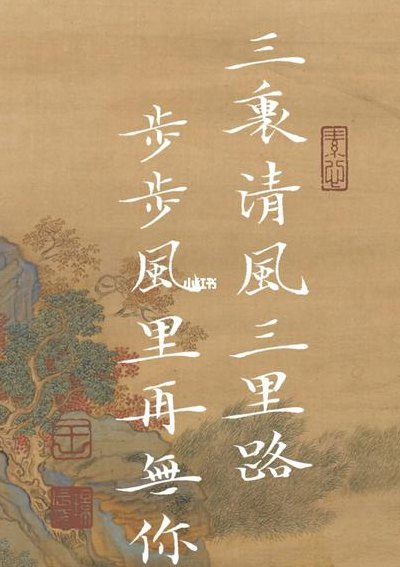 三裏清風三里路
步步風里再無你
小红书
素心